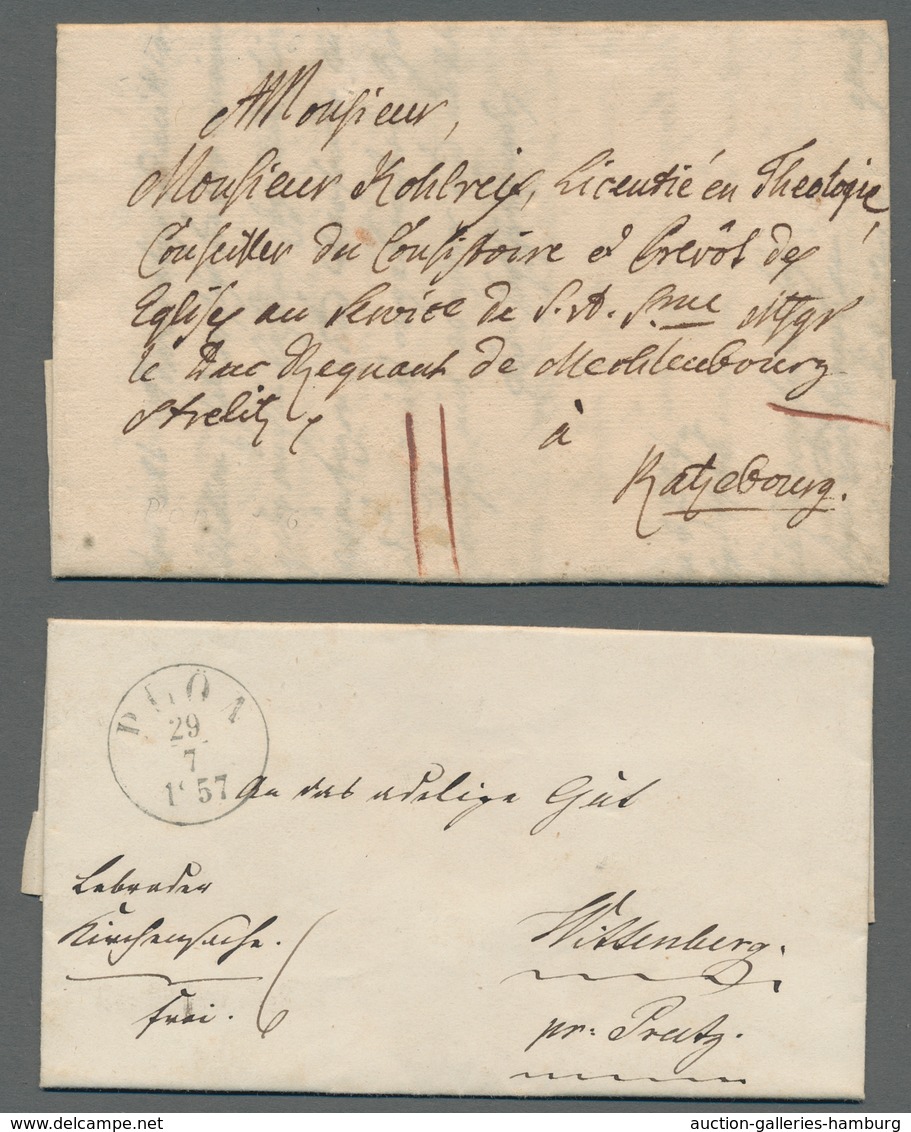 A Monsieur,
Monsieur Kohlreif, Licentié en Theologie,
Conseiller du Consistoire et Prevôt des
Eglises au Service de S. A. Sme Msgr
le Duc Regnant de Mecklenbourg
Strelitz
à
Ratzebourg.
PLÖN
29
7
1857
An das adelige Gut
Lebrader
Kirchensache.
frei.
Wittenberg.
pr: Preetz.
auction-galleries-hamburg